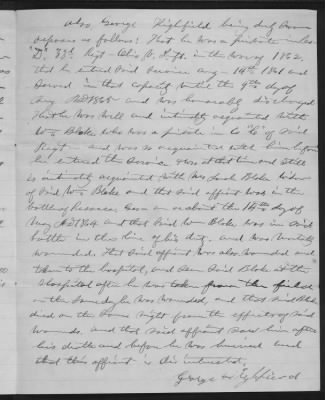 Also, George Highfield being duly sworn
deposes as follows: That he was a private in Co
"D" 33d Regt Ohio V. Inft. in the war of 1862,
that he entered said service Aug 14th 1861 and
served in that capacity until the 9th day of
Aug AD 1865 and was honorably discharged
That he was well and intimately acquainted with
Wm Blake who was a private in Co "G" of said
Regt and was so acquainted with him before
he entered the service was at that time and still
is intimately acquainted with Mrs Sarah Blake widow
of said Wm Blake and that said affiant was in the
battle of Resaca. Given on or about the 14th day of
May AD 1864 and that said Wm Blake was in said
battle in the line of his duty, and was mortally
wounded. That said affiant was also wounded and
taken to the hospital, and seen said Blake at the
Hospital after he was taken from the field
on the same day he was wounded, and that said Blake
died on the same night from the effects of said
wounds, and that said affiant saw him after
his death and before he was buried and
that this affiant is disinterested,
George Highfield